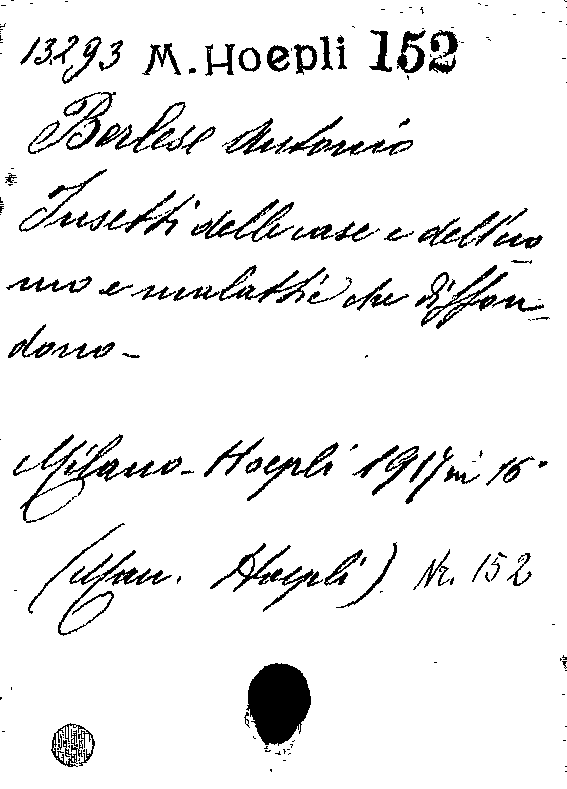 13293 M. Hoepli 152
Berlese Antonio
Insetti delle case e dell'uo
mo e malattie che diffon
dono -
Milano - Hoepli 1917 in 16°
(Man. Hoepli) Nr. 152